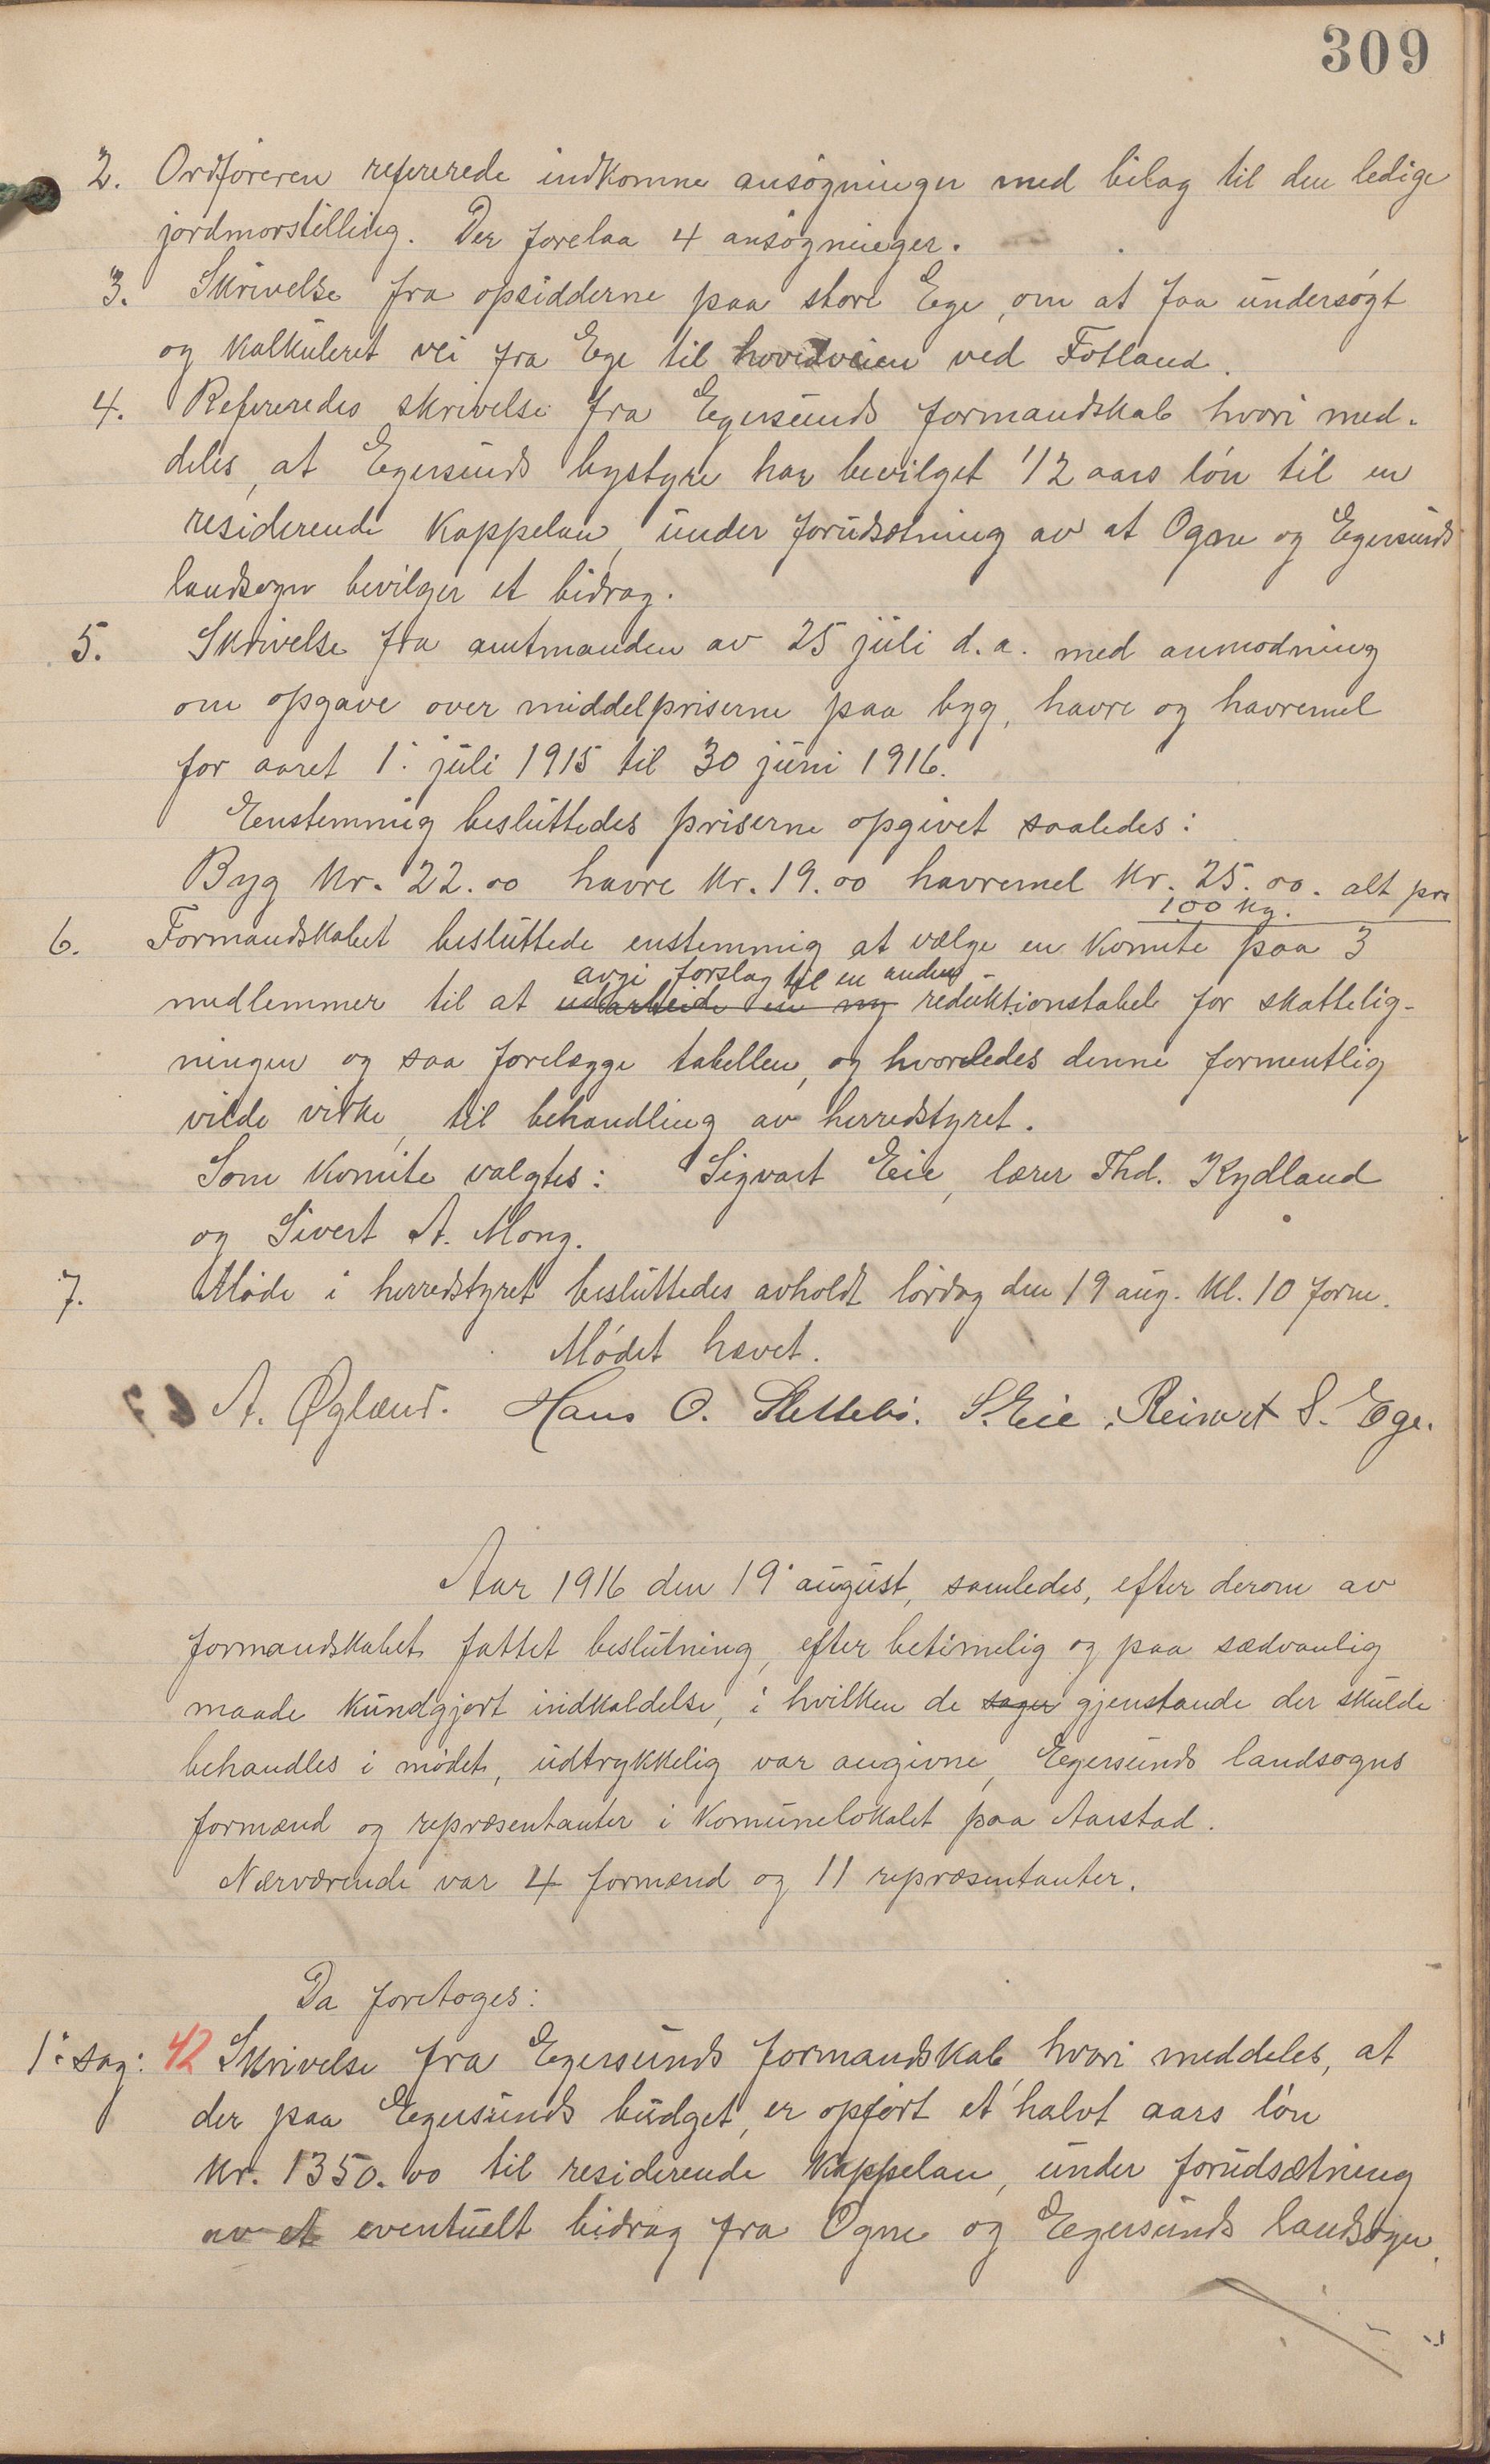 309
2. Ordføreren refererede indkomne ansøgninger med bilag til den ledige
jordmorstilling. Der forelaa 4 ansøgninger.
3. Skrivelse fra opsidderne paa store Ege, om at faa undersøgt
og kalkuleret vei fra Ege til hovedveien ved Fotland.
4. Refereredes skrivelse fra Egersunds formandskab hvori med-
deles, at Egersunds bystyre har bevilget 1/2 aars løn til en
residerende kappelan, under forudsætning av at Ogne og Egersunds
landsogn bevilger et bidrag.
5. Skrivelse fra amtmanden av 25 juli d.a. med anmodning
om opgave over middelpriserne paa byg, havre og havremel
for aaret 1. juli 1915 til 30 juni 1916.
Enstemmig besluttedes priserne opgivet saaledes:
Byg kr. 22.00 havre kr. 19.00 havremel kr. 25.00. alt pr.
100 kg.
6. Formandskabet besluttede enstemmig at vælge en komite paa 3
avgi forslag til en anden
medlemmer til at udarbeide en ny reduktionstabel for skattelig-
ningen og saa forelægge tabellen, og hvorledes denne formentlig
vilde virke, til behandling av herredstyret.
Som komite valgtes: Sigvart Eie, lærer Thd. Kydland
og Sivert A. Mong.
7. Møde i herredstyret besluttedes avholdt lørdag den 19 aug. kl. 10 form.
Mødet hævet.
A. Øglænd. Hans O. Slettebø. S. Eie. Reinert S. Ege.
Aar 1916 den 19. august, samledes, efter derom av
formandskabet fattet beslutning, efter betimelig og paa sædvanlig
maade kundgjort indkaldelse, i hvilken de sager gjenstande der skulde
behandles i mødet, udtrykkelig var angivne, Egersunds landsogns
formænd og repræsentanter i komunelokalet paa Aarstad.
Nærværende var 4 formænd og 11 repræsentanter.
Da foretoges:
1. sag: 42 Skrivelse fra Egersunds formandskab hvori meddeles, at
der paa Egersunds budget, er opført et halvt aars løn
kr. 1350.00 til residerende kappelan, under forudsætning
av et eventuelt bidrag fra Ogne og Egersunds landsogn.